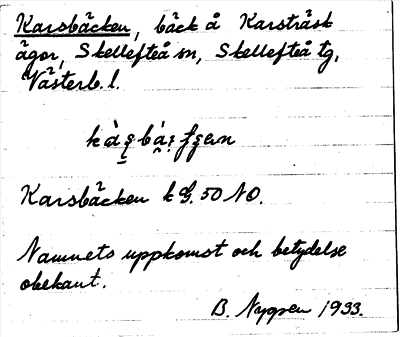 Karsbäcken, bäck å Karsträsk
ägor, Skellefteå sn, Skellefteå tg,
Västerb. l.
Karsbäcken k G. 50 NO.
Namnets uppkomst och betydelse
obekant.
B. Nygren 1933.